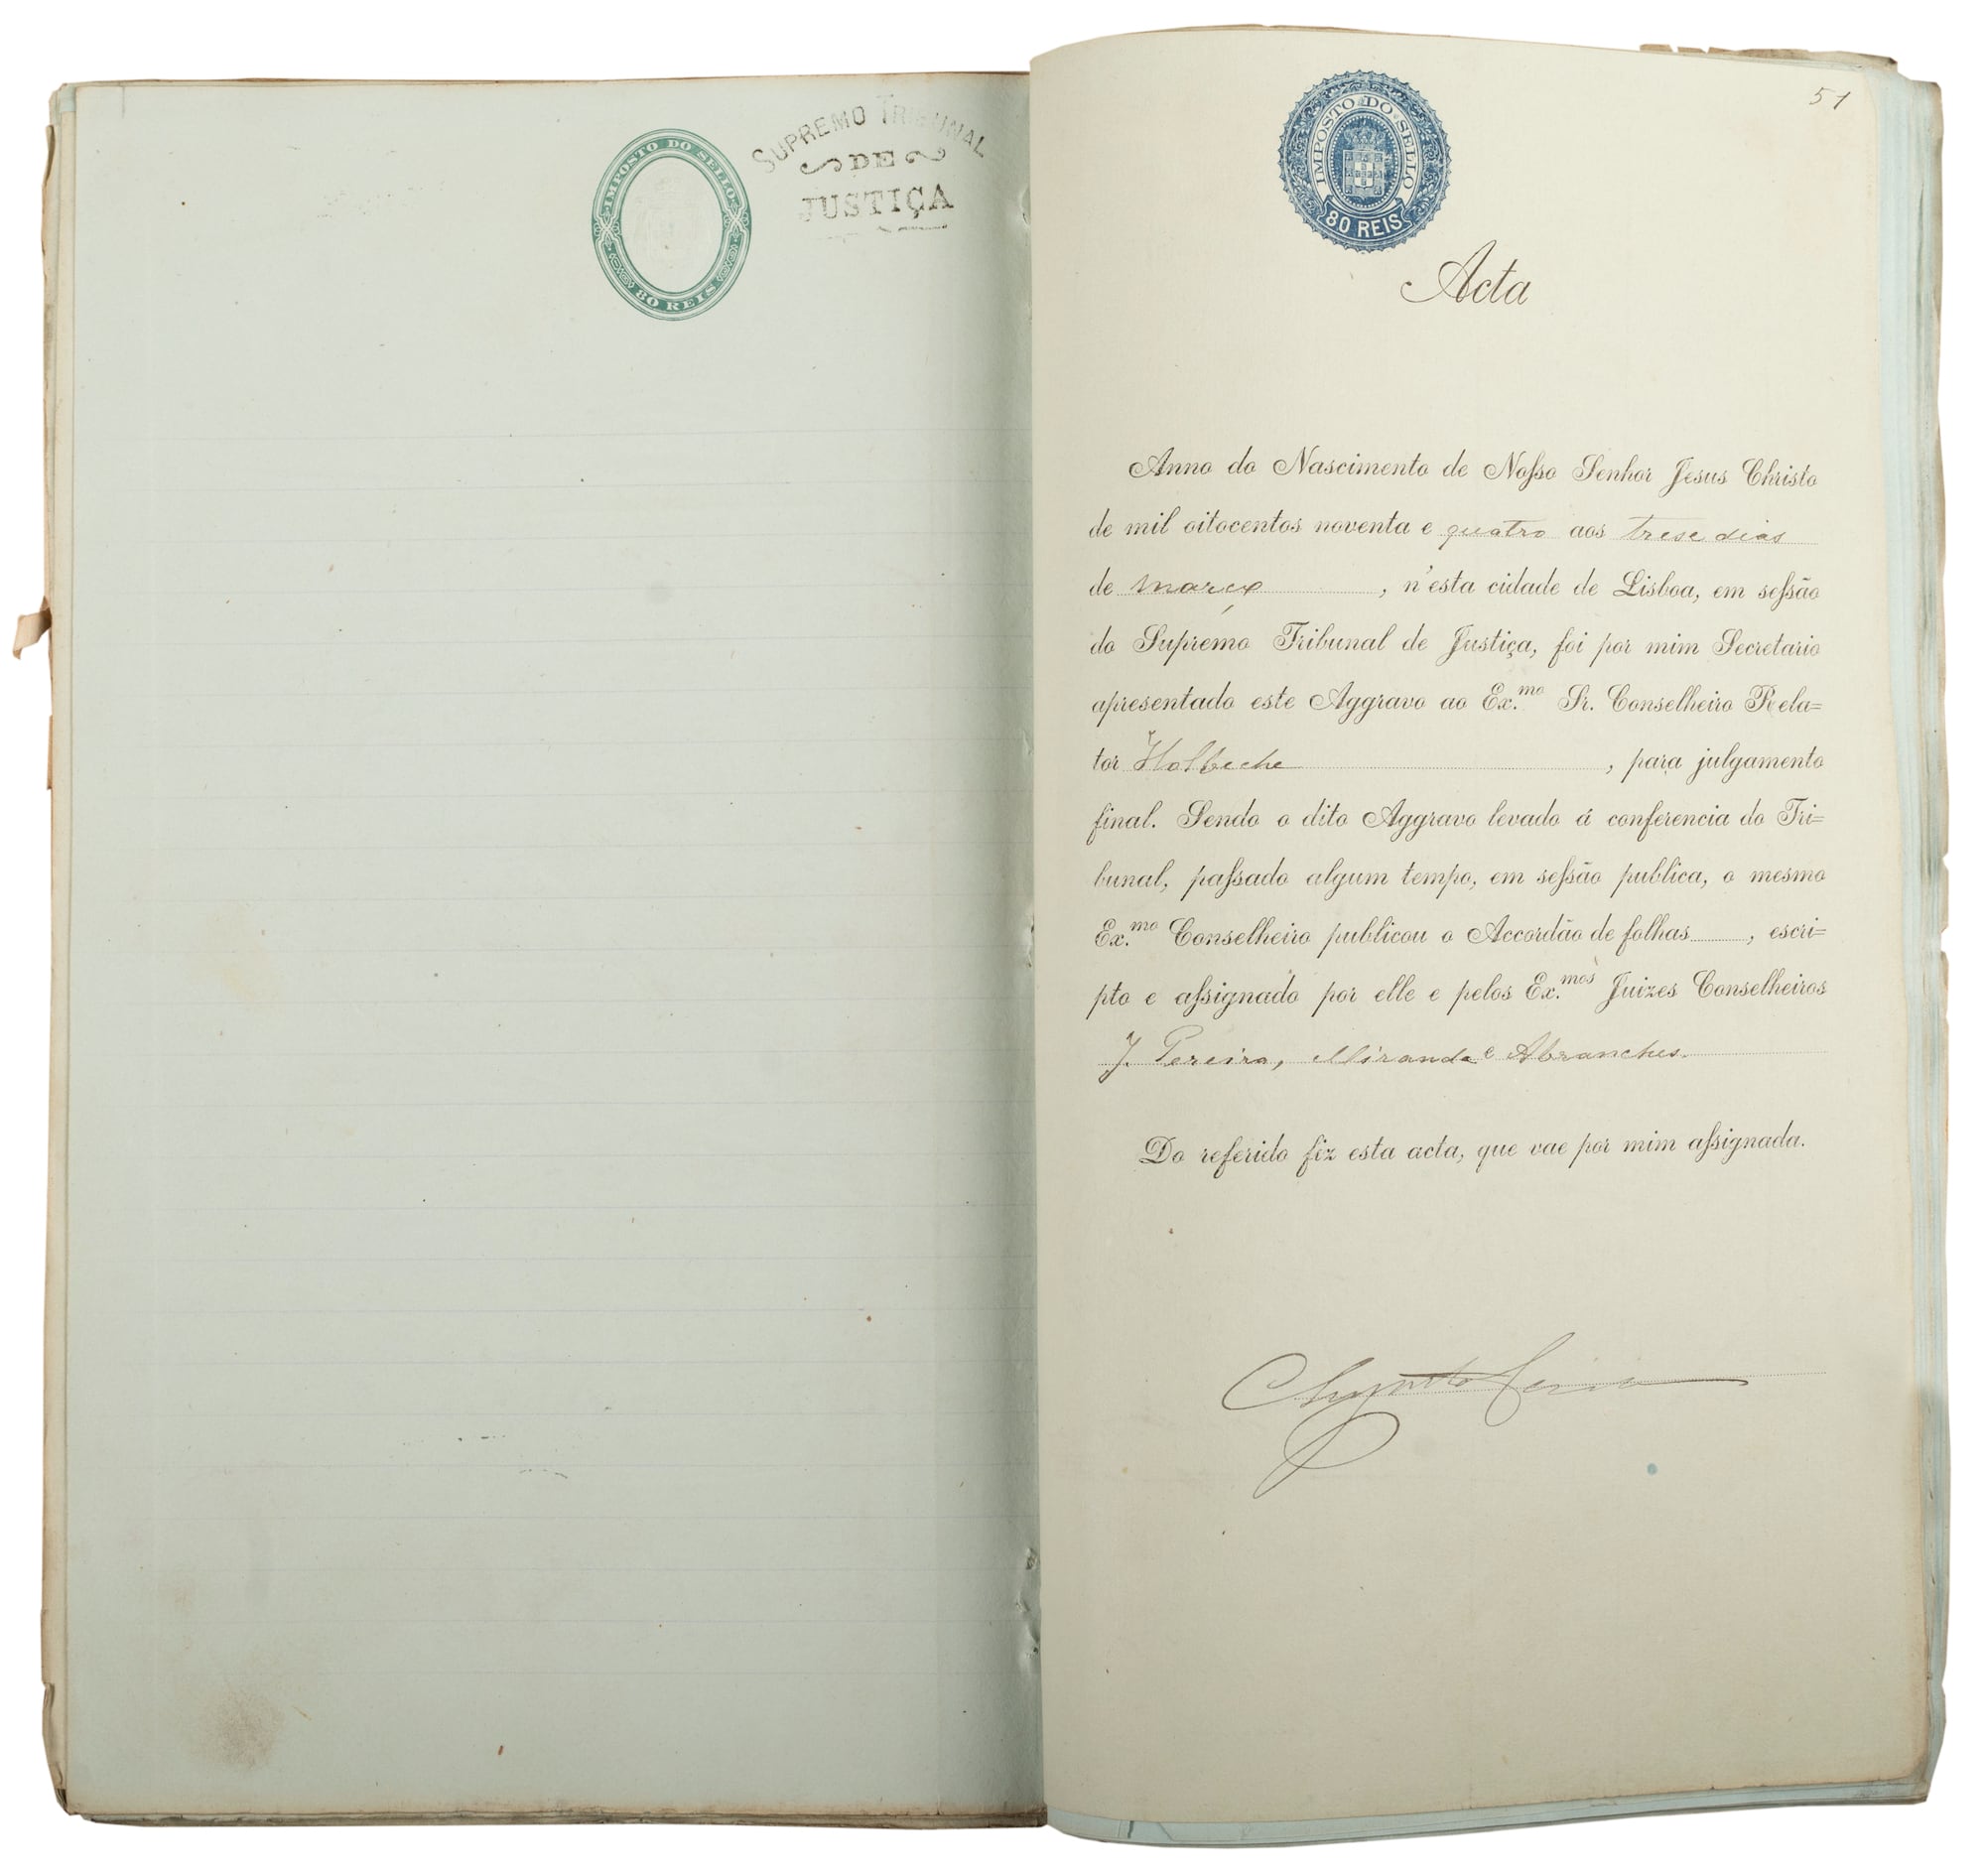 IMPOSTO DO SELLO
80 REIS
SUPREMO TRIBUNAL
DE
JUSTIÇA
51
IMPOSTO DO SELLO
80 REIS
Acta
Anno do Nascimento de Nosso Senhor Jesus Christo
de mil oitocentos noventa e quatro aos trese dias
de março, n'esta cidade de Lisboa, em sessão
do Supremo Tribunal de Justiça, foi por mim Secretario
apresentado este Aggravo ao Ex.mo Sr. Conselheiro Rela=
tor Holbeche, para julgamento
final. Sendo o dito Aggravo levado á conferencia do Tri=
bunal, passado algum tempo, em sessão publica, o mesmo
Ex.mo Conselheiro publicou o Accordão de folhas, escri=
pto e assignado por elle e pelos Ex.mos Juizes Conselheiros
J. Pereira, Miranda e Abranches.
Do referido fiz esta acta, que vae por mim assignada.